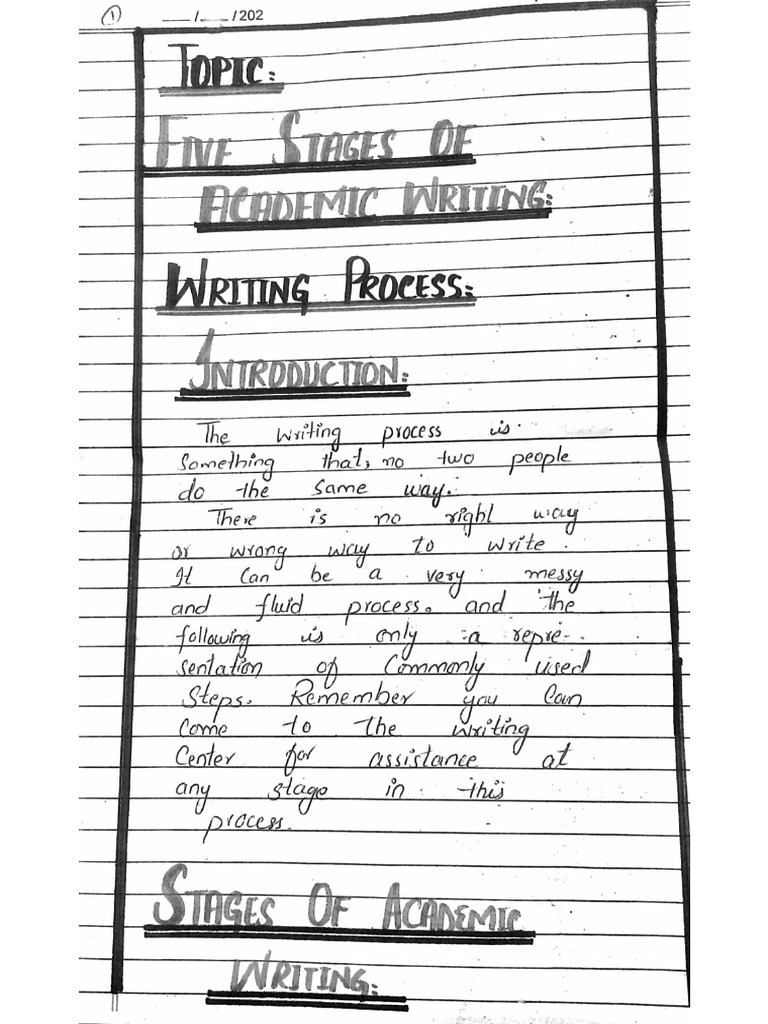 ① ___/___/202
TOPIC:
FIVE STAGES OF
ACADEMIC WRITING:
WRITING PROCESS:
INTRODUCTION:
The writing process is
something that, no two people
do the same way.
There is no right way
or wrong way to write.
It can be a very messy
and fluid process. and the
following is only a repre-
sentation of commonly used
steps. Remember you can
come to the writing
Center for assistance at
any stage in this
process.
STAGES OF ACADEMIC
WRITING: